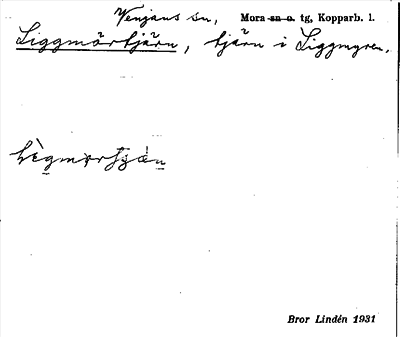 Venjans sn, Mora sn o. tg, Kopparb. l.
Liggmörtjärn, tjärn i Liggmyren.
Bror Lindén 1931